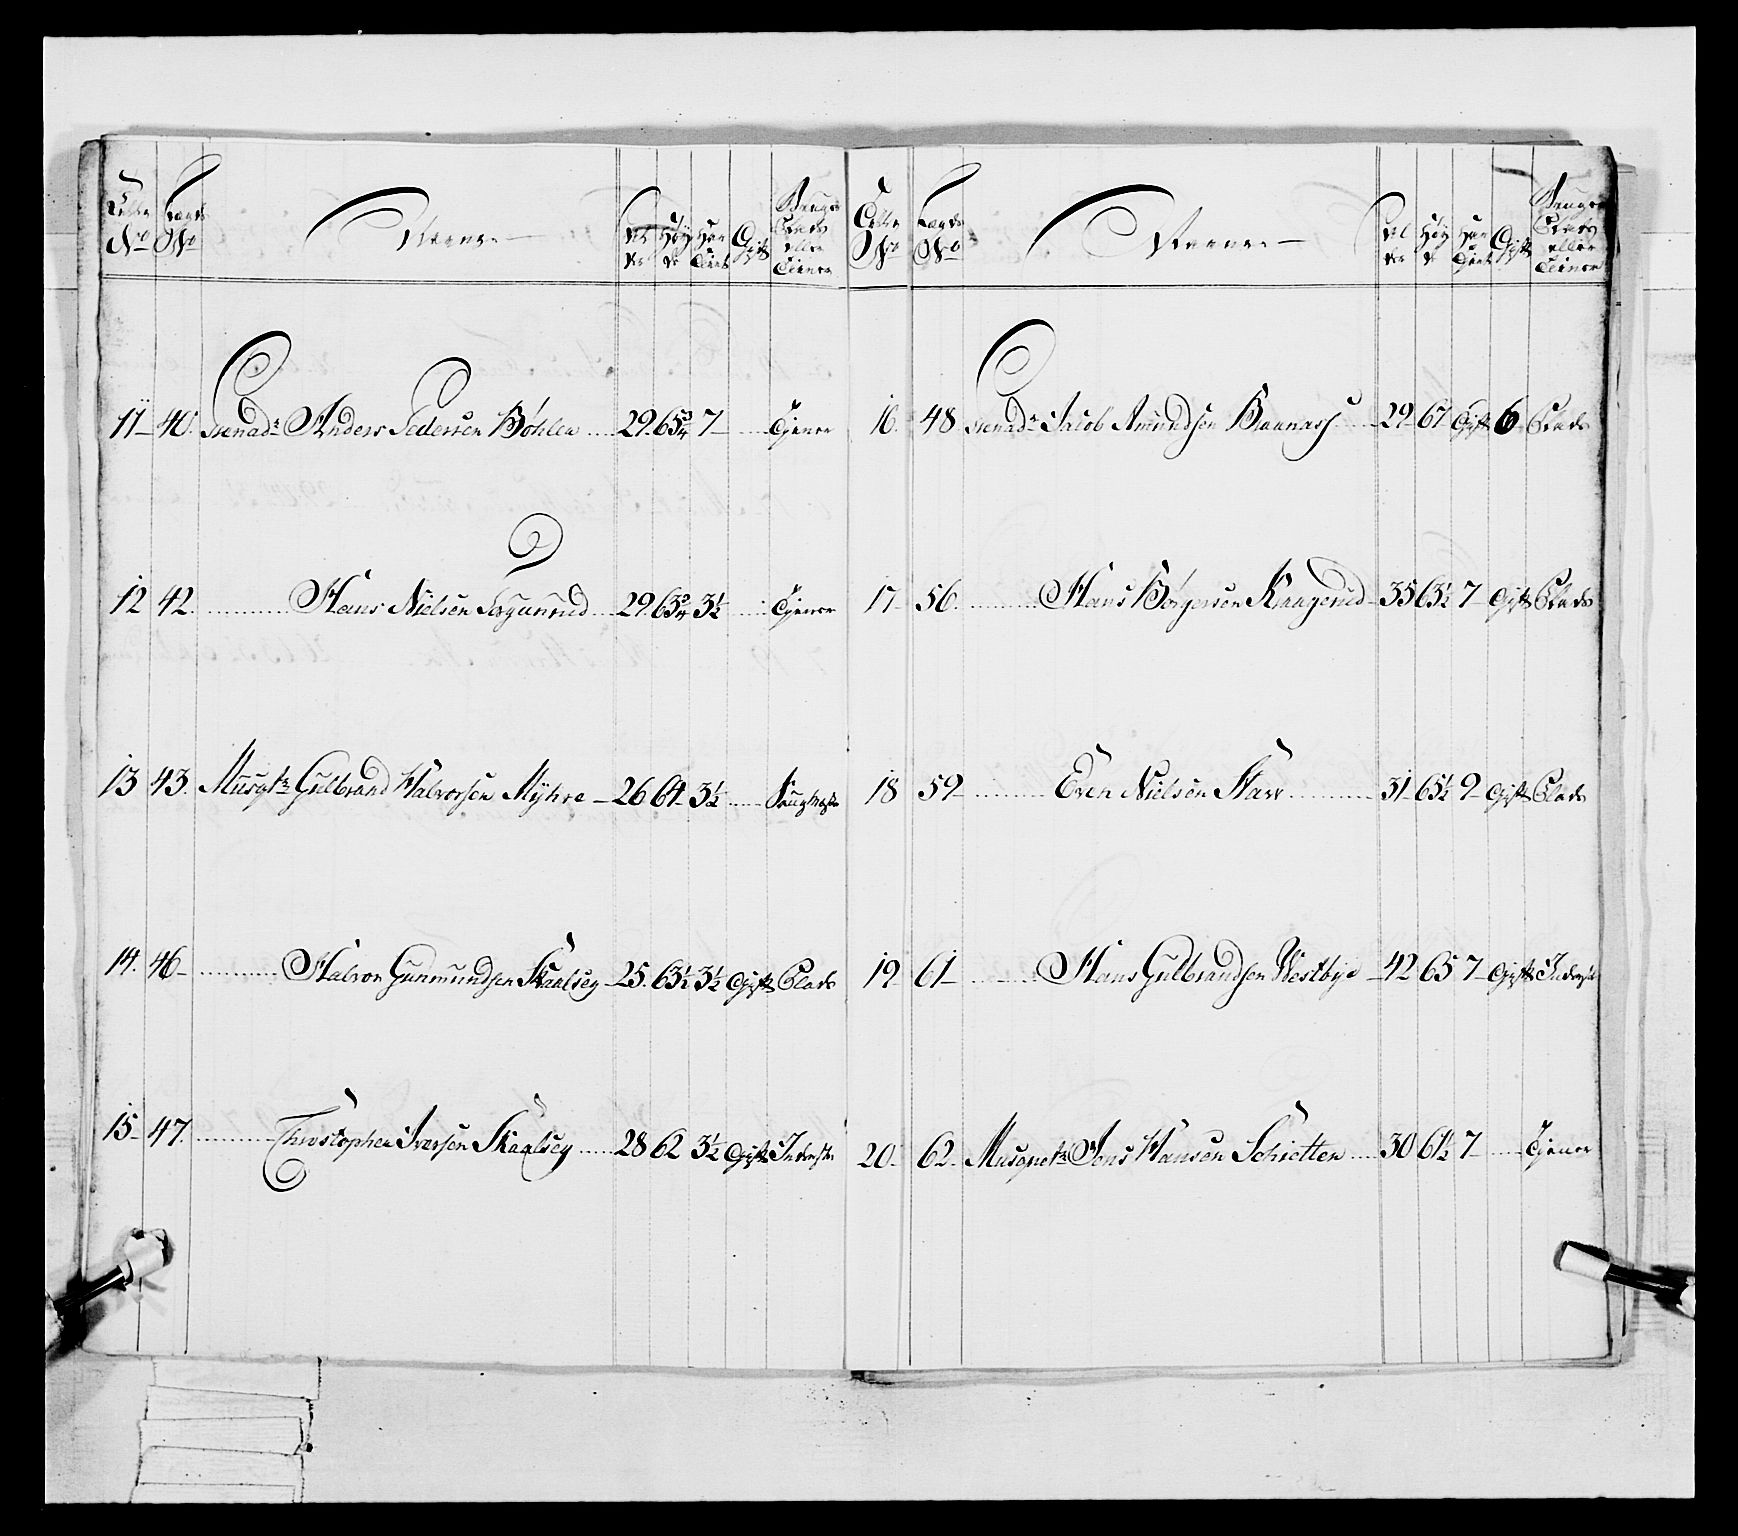 No No Navne Al der Høy de Gift eller Tiener
11 40. Grenadr Anders Pedersen Bøhlen 29. 65¾ 7 Tjener
12 42. Hans Nielsen 29. 63¾ 3½ Tjener
13 43. Musqtr Gulbrand Halvorsen Myhre 26 64 3½
14. 46 Halvor Gunmundsen Skaalsey 25. 63½ 3½ Gift Plads
15 47. Christopher Iversen Skaalsey 28 62 3½ Gift Inderste
No No Navne Al der Høy de Gift Plads eller Tiener
16. 48 Grenadr Jacob Amundsen 29 67 Gift 6 Plads
17 56. Hans Børgersen Kraagerud 35 63½ 7 Gift Plads
18 59 Even Nielsen Harr 31 65½ 9 Gift Plads
19 61 Hans Gulbrandsen Westbye 42 65 7 Gift Inderste
20 62. Musquetr Jens Hansen Schietten 30 61½ 7 Tjener